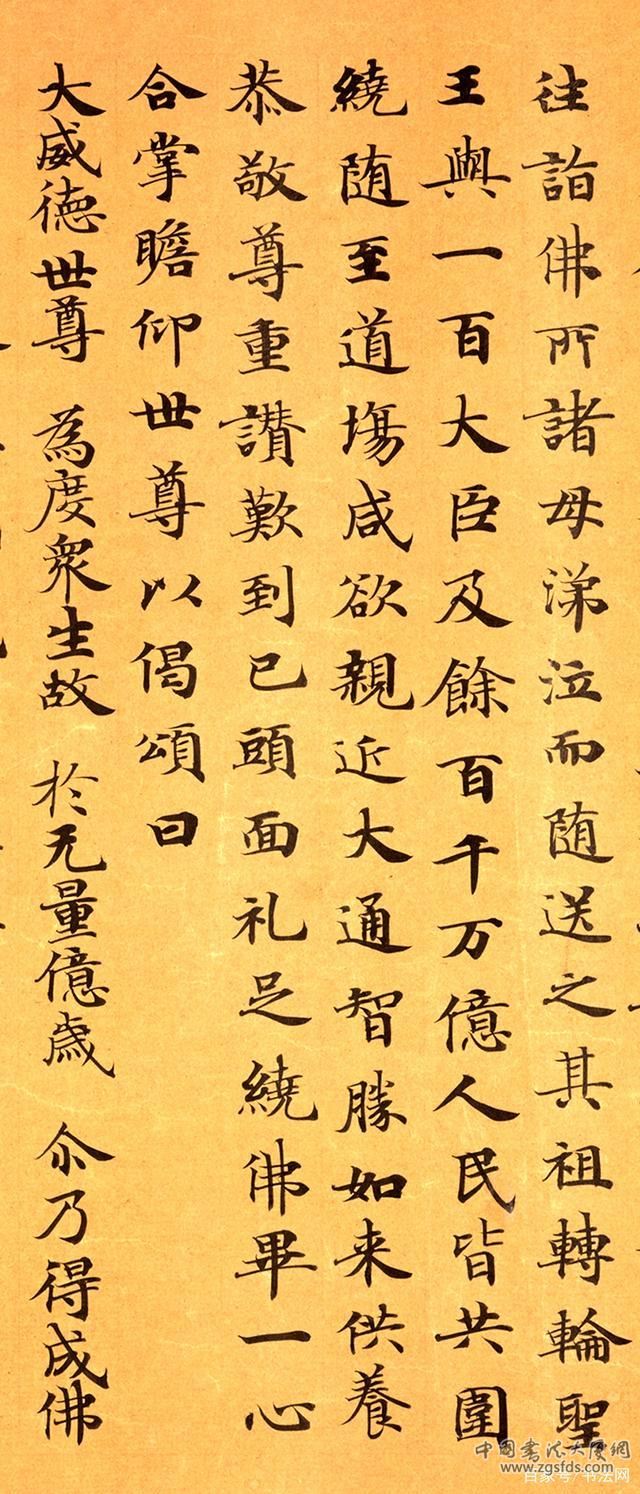 往詣佛所諸母涕泣而随送之其祖轉輪聖
王與一百大臣及餘百千万億人民皆共圍
繞随至道塲咸欲親近大通智勝如来供養
恭敬尊重讃歎到已頭面礼足繞佛畢一心
合掌瞻仰世尊以偈頌曰
大威德世尊 為度衆生故 於无量億歲 尒乃得成佛
中国书法大厦网
www.zgsfds.com
百家号/书法网